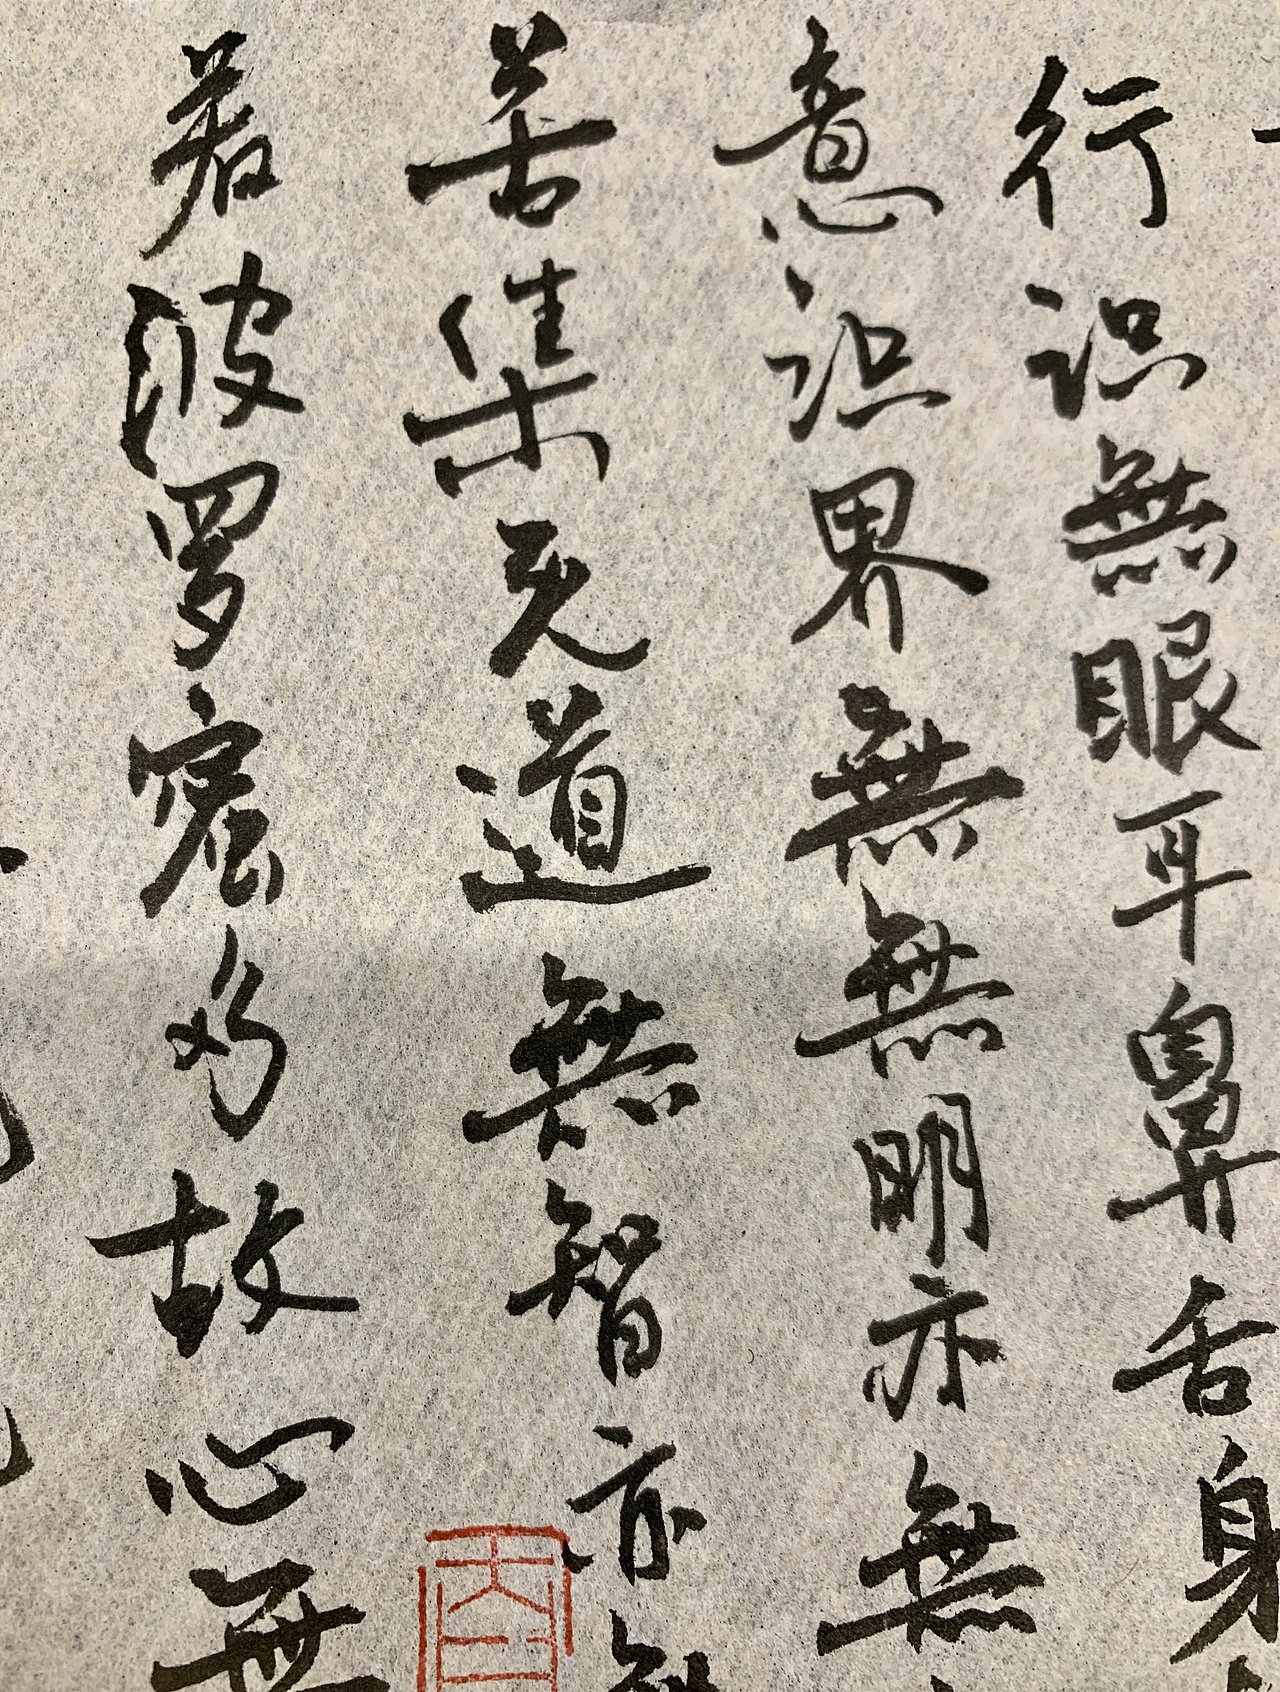 行识無眼耳鼻舌身
意识界無無明亦無
苦集灭道無智亦無
若波罗蜜多故心無